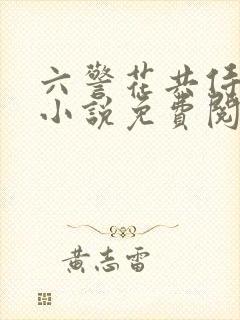 六警花共侍
小說免費閱
黃志雷